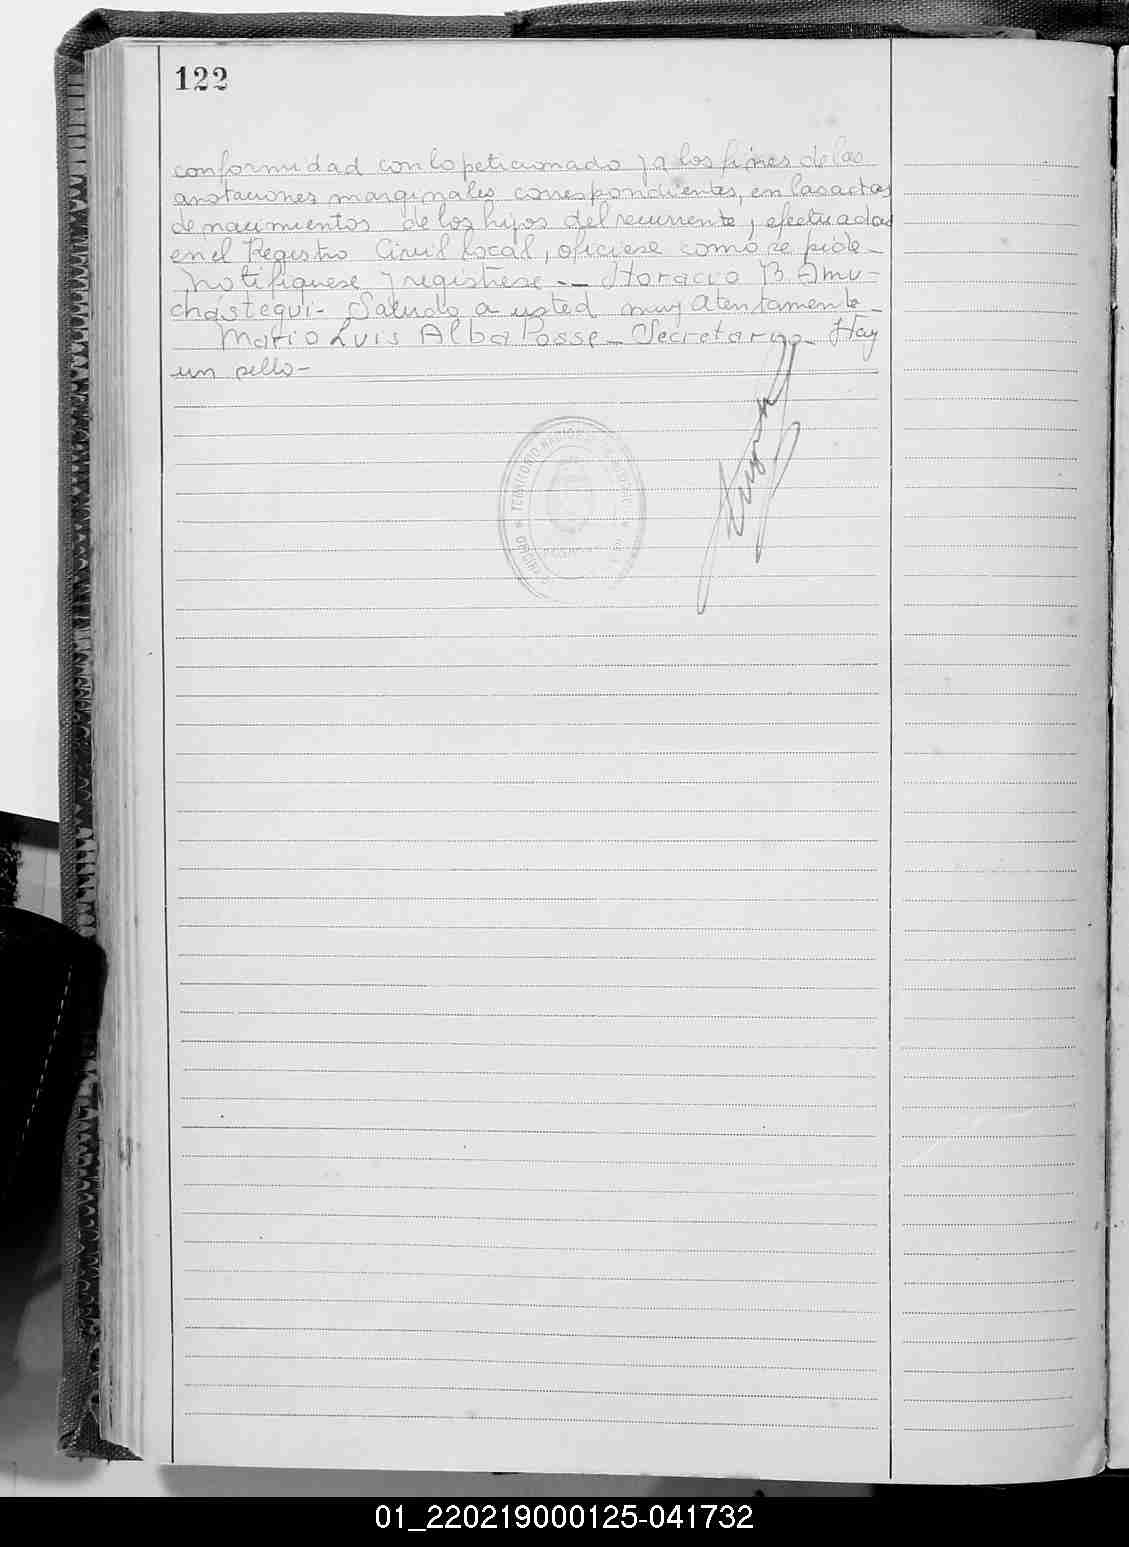 122
conformidad con lo peticionado y a los fines de las
anotaciones marginales correspondientes, en las actas
de nacimientos de los hijos del recurrente, efectuadas
en el Registro Civil local, ofíciese como se pide_
Notifíquese y regístrese._ Horacio B. Amu-
chástegui- Saludo a usted muy atentamente_
Mario Luis Alba Posse_ Secretario_ Hay
un sello-
TERRITORIO NACIONAL
01_220219000125-041732